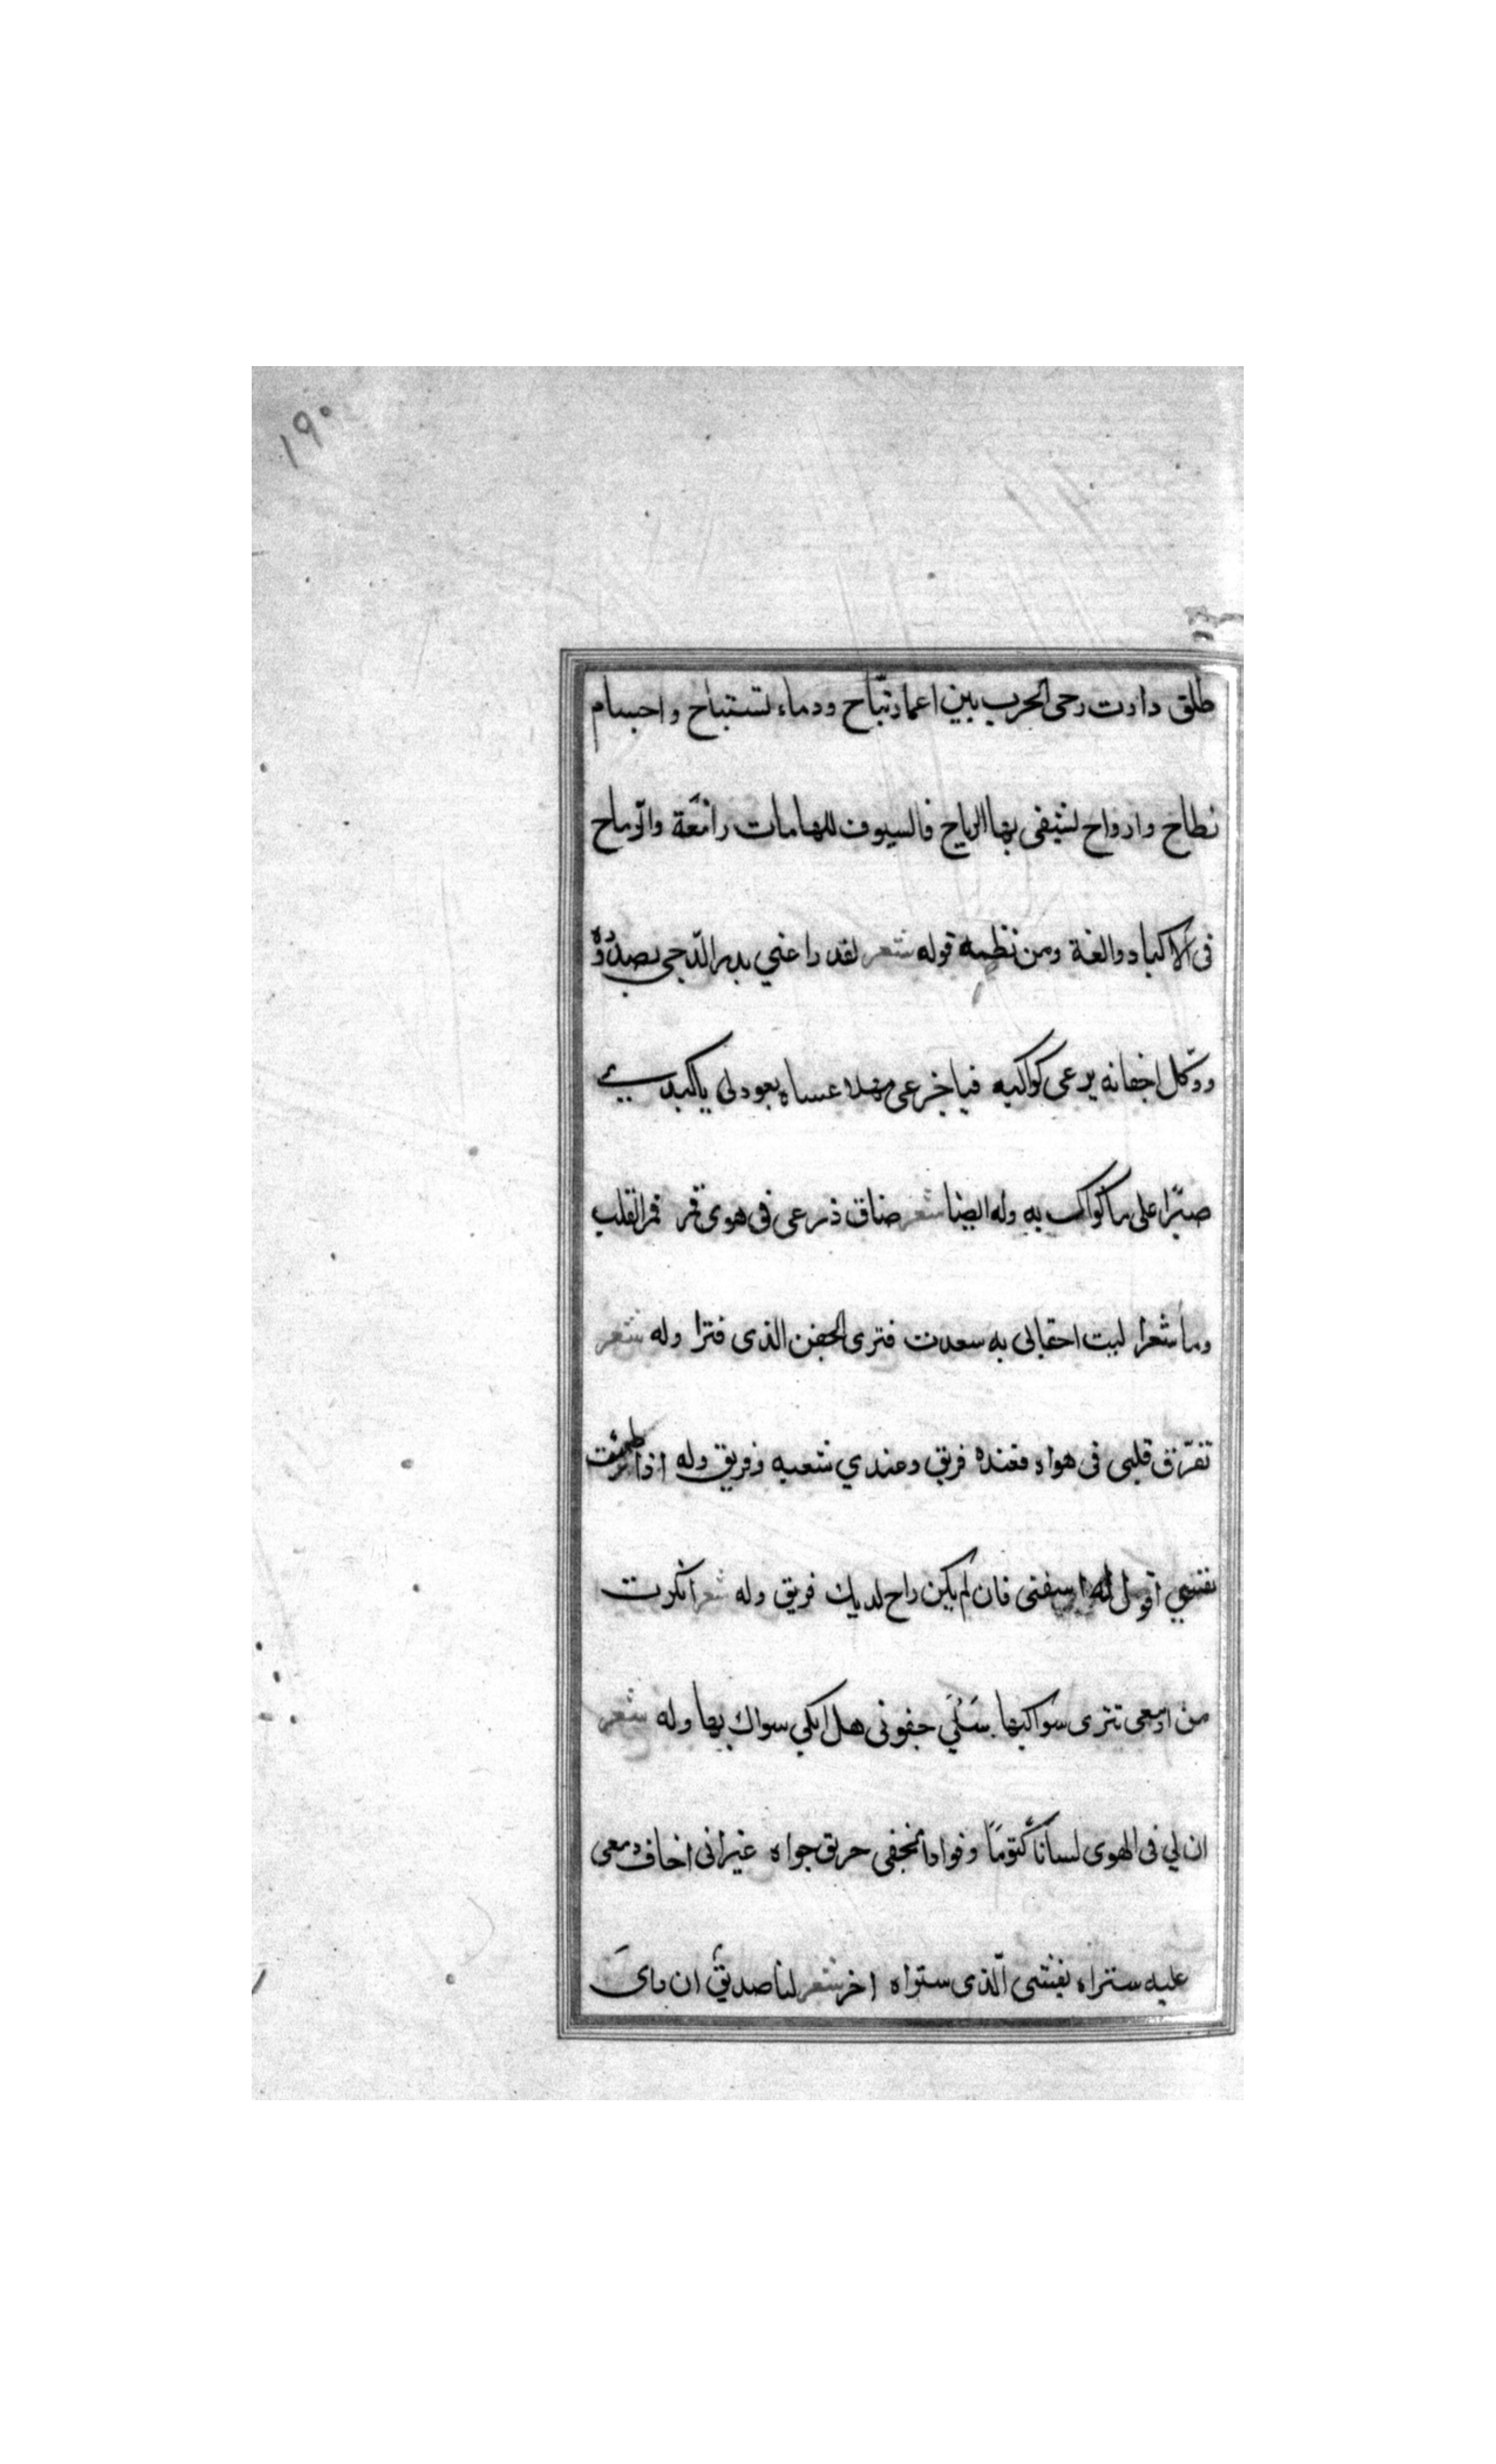 ١٩٠
طلق دارت رحى الحرب بين اعمار تباح ودماء تستباح واجسام
نطاح وارواح تشفى بها الرياح فالسيوف للهامات رافعة والرماح
فى الاكباد والغة ومن نظمه قوله شعر لقد راعني بدر الدجى بصدوده
ووكل اجفانه يرعى كواكبه فيا جرعى مهلا عساه يعود لى ياكبدى
صبرا على ما كواك به وله ايضا شعر ضاق ذرعى فى هوى قمر قمر القلب
وما شعرا ليت احقالى به سعدت فترى الجفن الذى فترا وله شعر
تفرّق قلبى فى هواه فعنده فريق وعندي شعبه وفريق وله اذا
نفسي اقول له اسقنى فان لم يكن راح لديك فريق وله شعر انكرت
من ادمعى تترى سواكبها سَلْيَ جفونى هل ابكي سواك بها وله شعر
ان لي فى الهوى لسانا كتومًا وفوادا يخفى حريق جواه غير انى اخاف دمعى
عليه ستراه يفشى الّذى ستراه اخر شعر لنا صديق ان راى